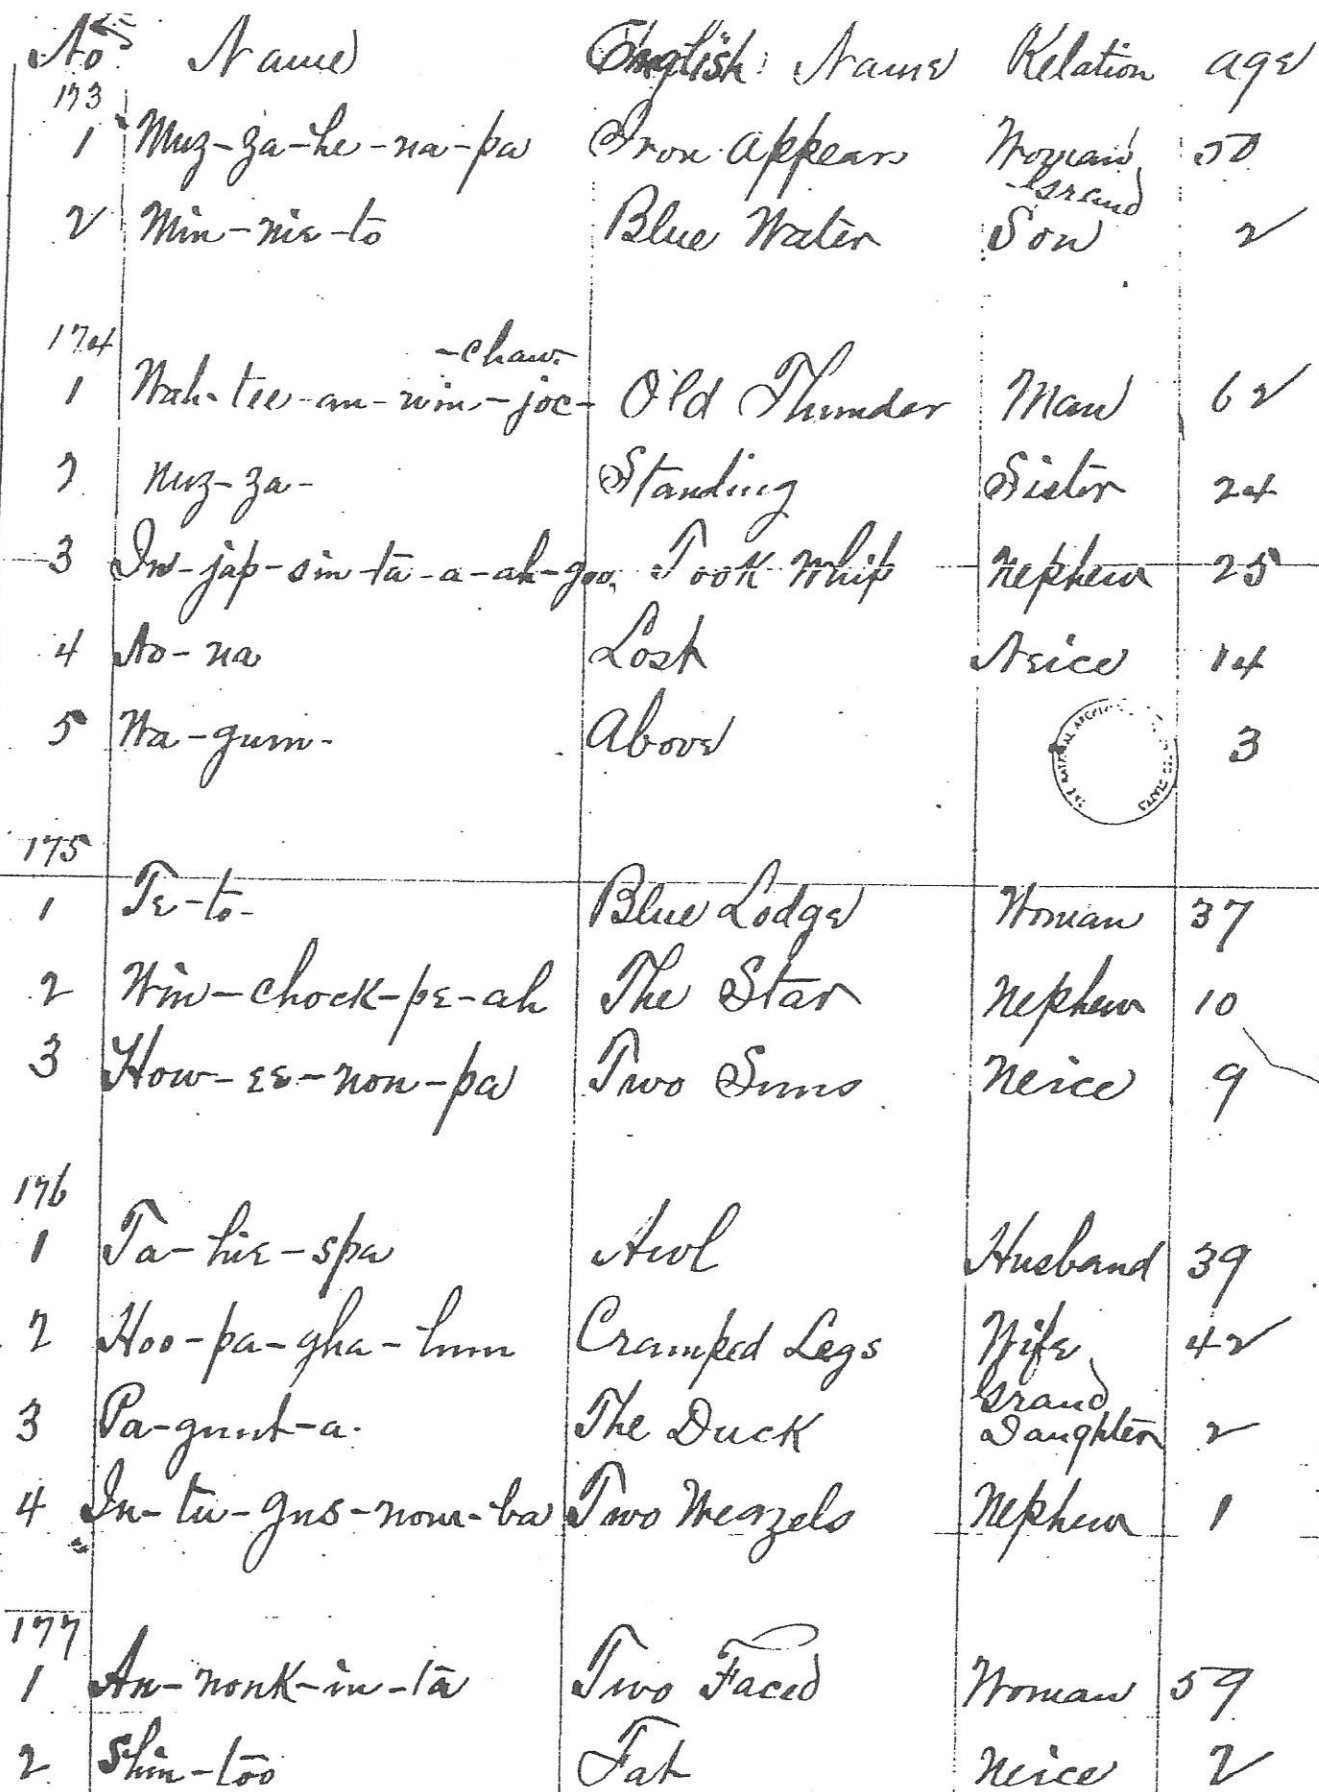 No Name English Name Relation age
173
1 Muz-za-he-na-pa Iron appears Woman 50
2 Min-nie-to Blue Water Grand Son 2
174
-chaw-
1 Wah-tee-an-win-joc- Old Thunder Man 62
2 Muz-za- Standing Sister 24
3 In-jap-sin-ta-a-ah-goo. Took Whip Nephew 25
4 No-na Lost Neice 14
5 Wa-gum- Above 3
175
1 Te-to- Blue Lodge Woman 37
2 Win-chock-pe-ah The Star Nephew 10
3 How-ee-non-pa Two Suns Neice 9
176
1 Ta-hie-spa Awl Husband 39
2 Hoo-pa-gha-hnn Cramped Legs Wife 42
3 Pa-gunt-a. The Duck Grand Daughter 2
4 In-tu-gus-nom-ba Two Weazels Nephew 1
177
1 An-nonk-in-ta Two Faced Woman 59
2 Shin-too Fat Neice 2